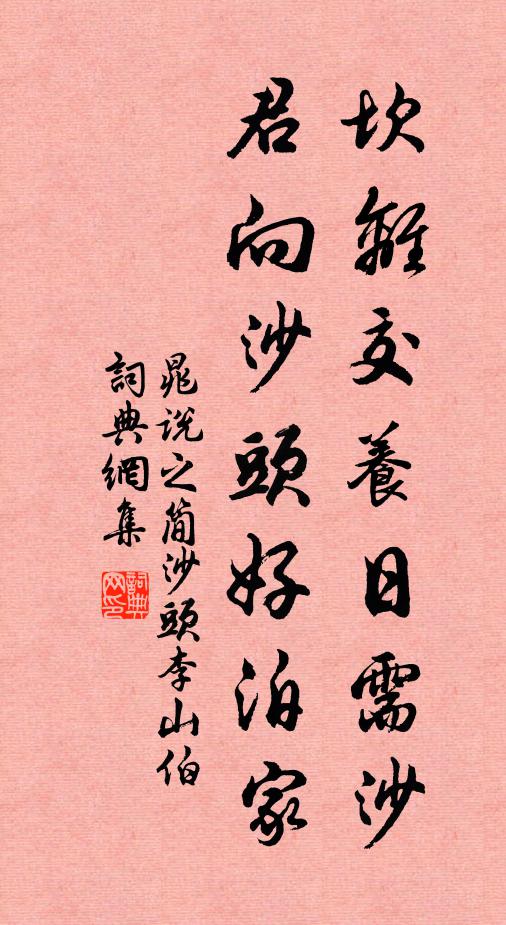 坎離交養日需沙
君向沙頭好泊家
晁說之簡沙頭李山伯
詞典網集
詞典网印